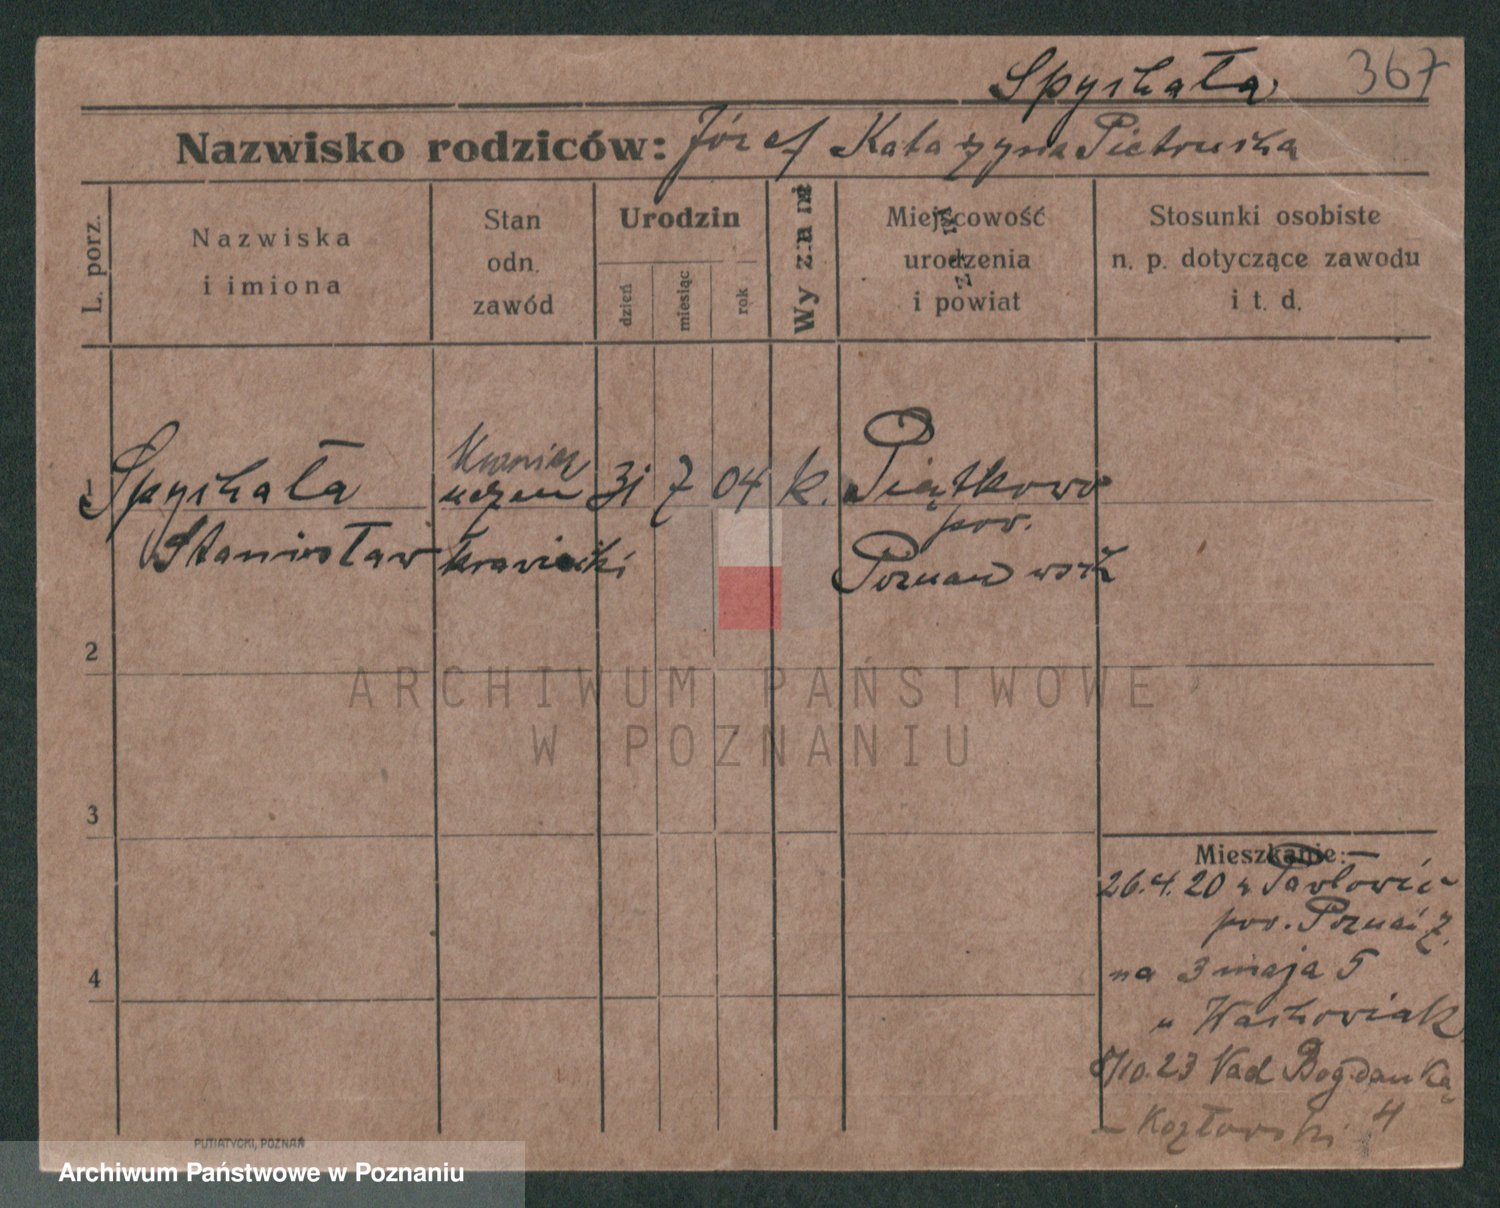 Spychała 367
Nazwisko rodziców: Józef Katarzyna Pietruska
L. porz.
Nazwiska
i imiona
Stan
odn.
zawód
Urodzin
dzień
miesiąc
rok
Miejscowość
urodzenia
i powiat
Stosunki osobiste
n. p. dotyczące zawodu
i t. d.
1 Spychała uczeń 31 7 04 k. Piątkowo
pow.
Stanisław krawiecki
2
ARCHIWUM PAŃSTWOWE
W POZNANIU
3
Mieszkanie:
26.4.20 z Pawłowic
pow. Poznań Z.
na 3 maja 5
u Wachowiak
8/10.23 Nad Bogdanką 4
Kozłowski
4
PUTIATYCKI, POZNAŃ
Archiwum Państwowe w Poznaniu